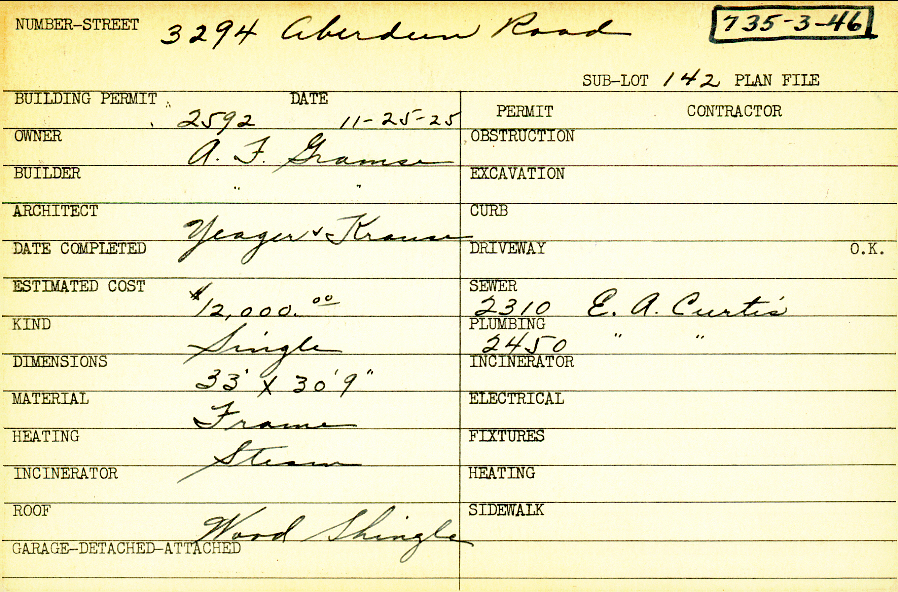 NUMBER-STREET 3294 Aberdeen Road 735-3-46
SUB-LOT 142 PLAN FILE
BUILDING PERMIT 2592 DATE 11-25-25
PERMIT CONTRACTOR
OWNER A. F. Gramse
OBSTRUCTION
BUILDER " "
EXCAVATION
ARCHITECT Yeager & Krause
CURB
DATE COMPLETED
DRIVEWAY O.K.
ESTIMATED COST $12,000.00
SEWER 2310 E. A. Curtis
KIND Single
PLUMBING 2450 " "
DIMENSIONS 33' X 30'9"
INCINERATOR
MATERIAL Frame
ELECTRICAL
HEATING Steam
FIXTURES
INCINERATOR
HEATING
ROOF Wood Shingle
SIDEWALK
GARAGE-DETACHED-ATTACHED